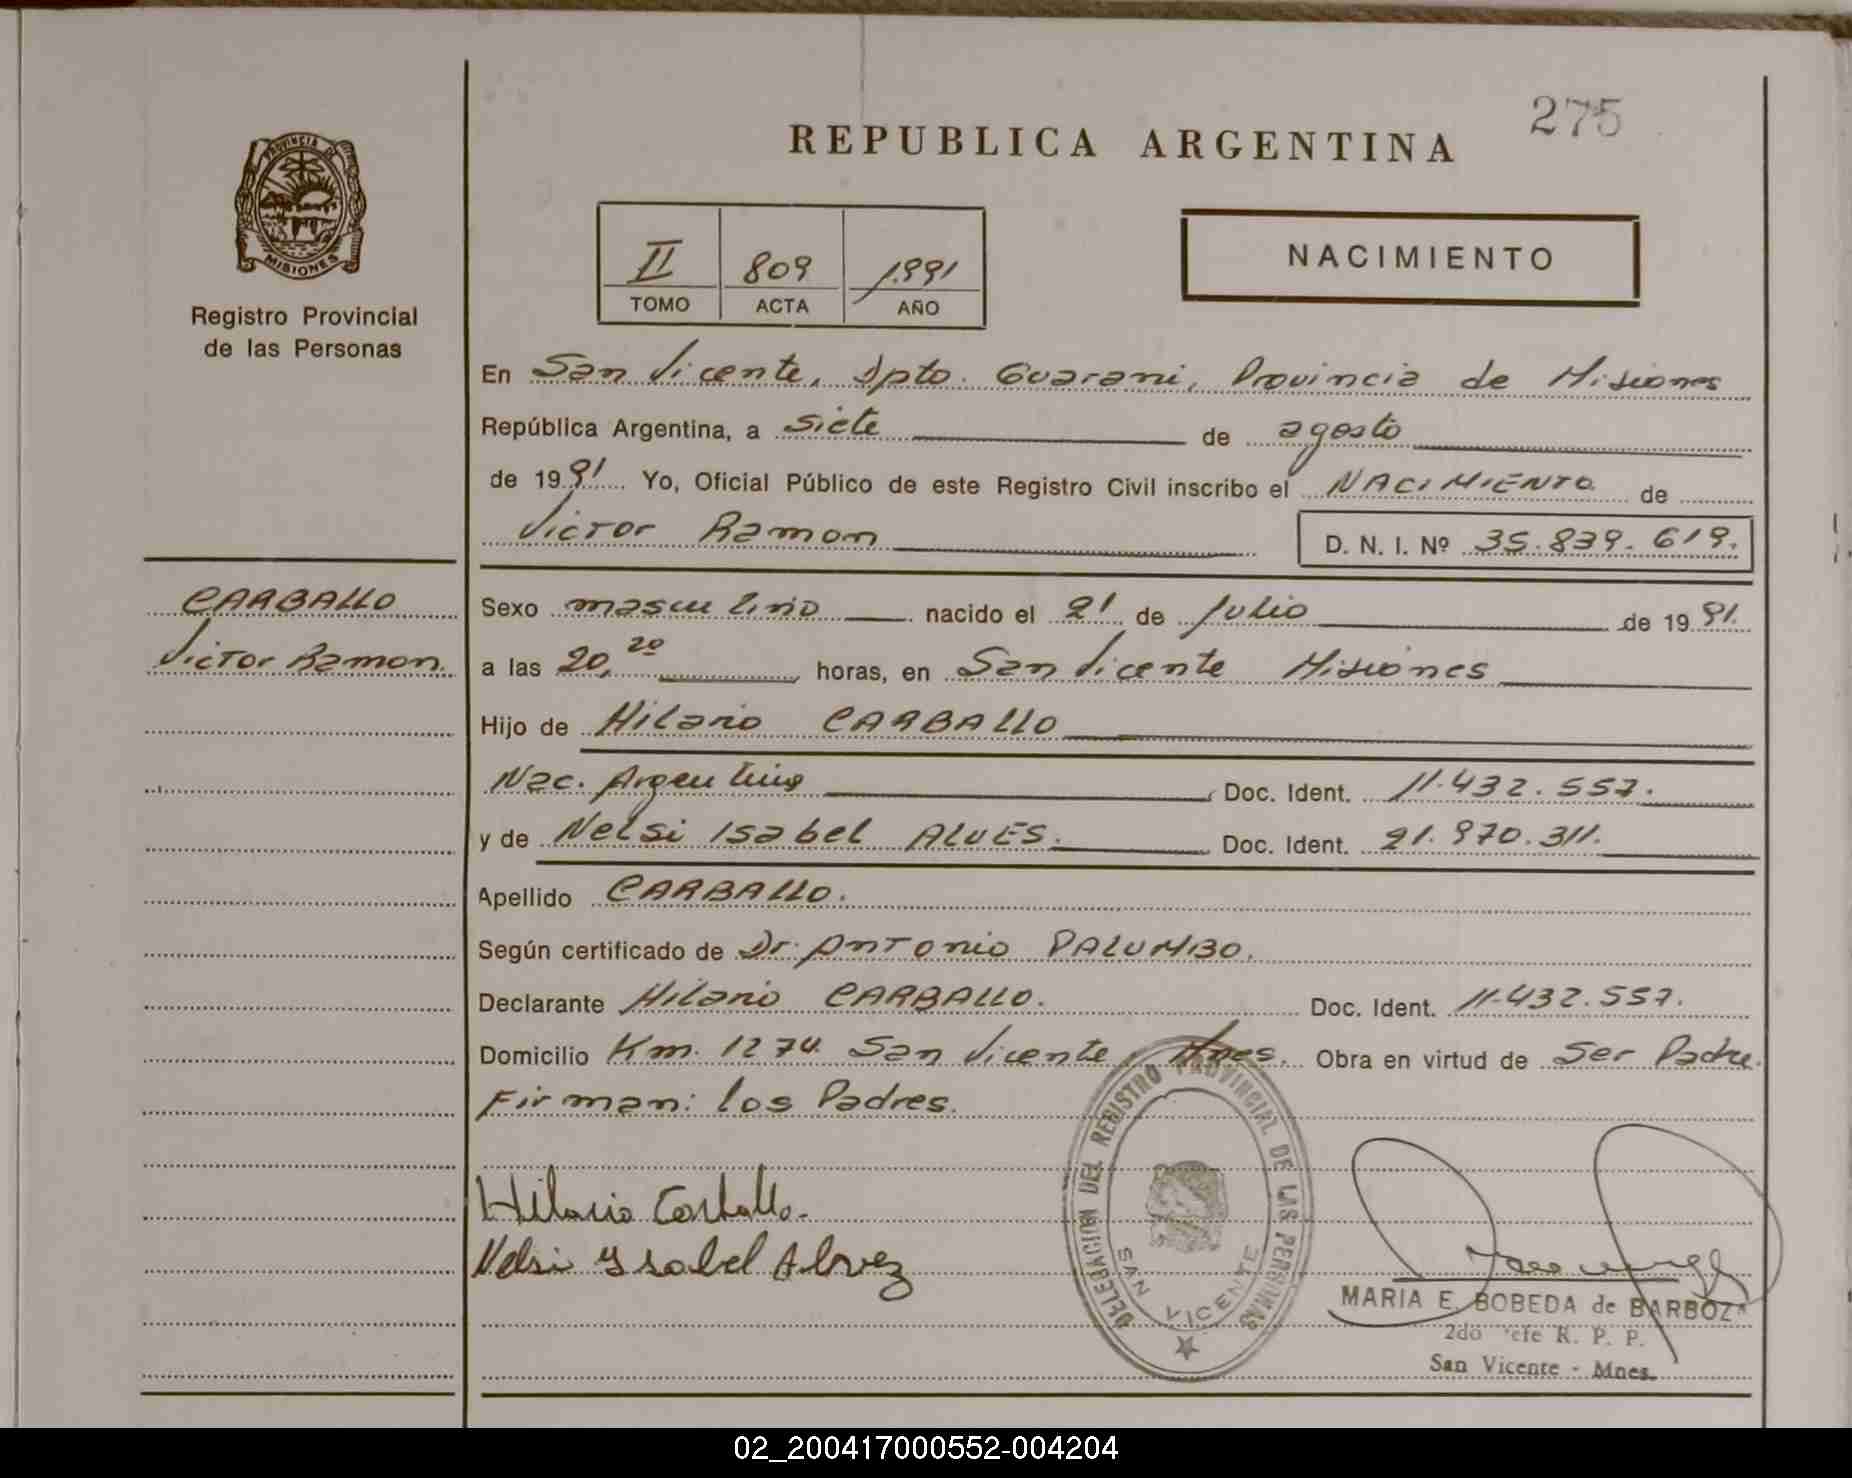 275
REPUBLICA ARGENTINA
PROVINCIA DE
MISIONES
Registro Provincial
de las Personas
II 809 1991
TOMO ACTA AÑO
NACIMIENTO
En San Vicente, Dpto. Guarani, Provincia de Misiones
República Argentina, a siete de agosto
de 1991 Yo, Oficial Público de este Registro Civil inscribo el NACIMIENTO de
Victor Ramon
D. N. I. Nº 35.839.619.
CARBALLO
Victor Ramon.
Sexo masculino nacido el 21 de Julio de 1991.
a las 20,20 horas, en San Vicente Misiones
Hijo de Hilario CARBALLO
Nac. Argentina Doc. Ident. 11.432.557.
y de Nelsi Isabel ALVES. Doc. Ident. 21.970.311.
Apellido CARBALLO.
Según certificado de Dr. Antonio PALUMBO.
Declarante Hilario CARBALLO. Doc. Ident. 11.432.557.
Domicilio Km. 1274 San Vicente, Mnes. Obra en virtud de Ser Padre.
Firman: los Padres.
Hilario Carballo.
Nelsi Ysabel Alvez
DELEGACION DEL REGISTRO PROVINCIAL DE LAS PERSONAS
SAN VICENTE
MARIA E. BOBEDA de BARBOZA
2do Jefe R. P. P.
San Vicente - Mnes.
02_200417000552-004204